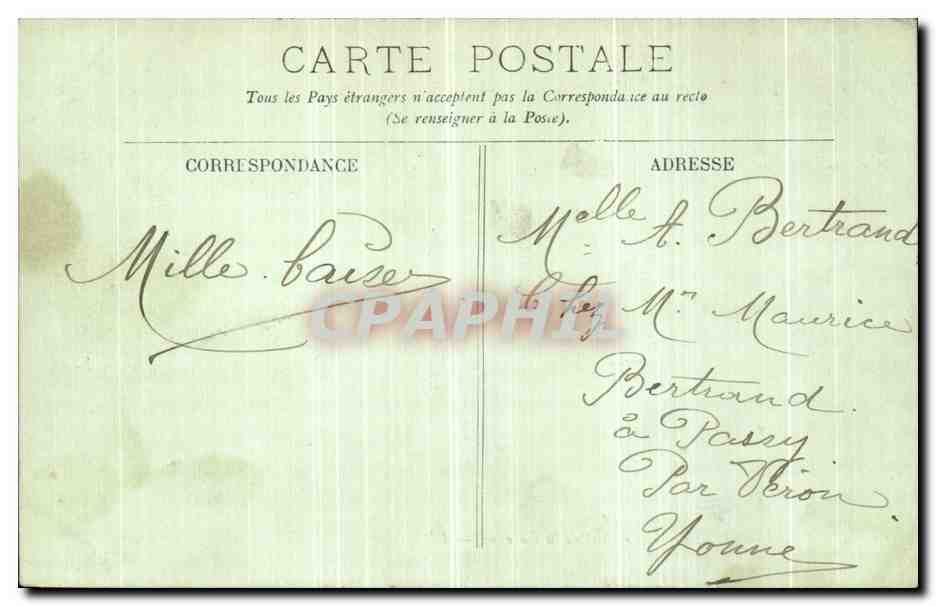 CARTE POSTALE
Tous les Pays étrangers n'acceptent pas la Correspondance au recto
(Se renseigner à la Poste).
CORRESPONDANCE
Mille baiser
ADRESSE
Melle A. Bertrand
Chez Mr Maurice
Bertrand.
à Passy
Par Véron
Yonne
CPAPHIL